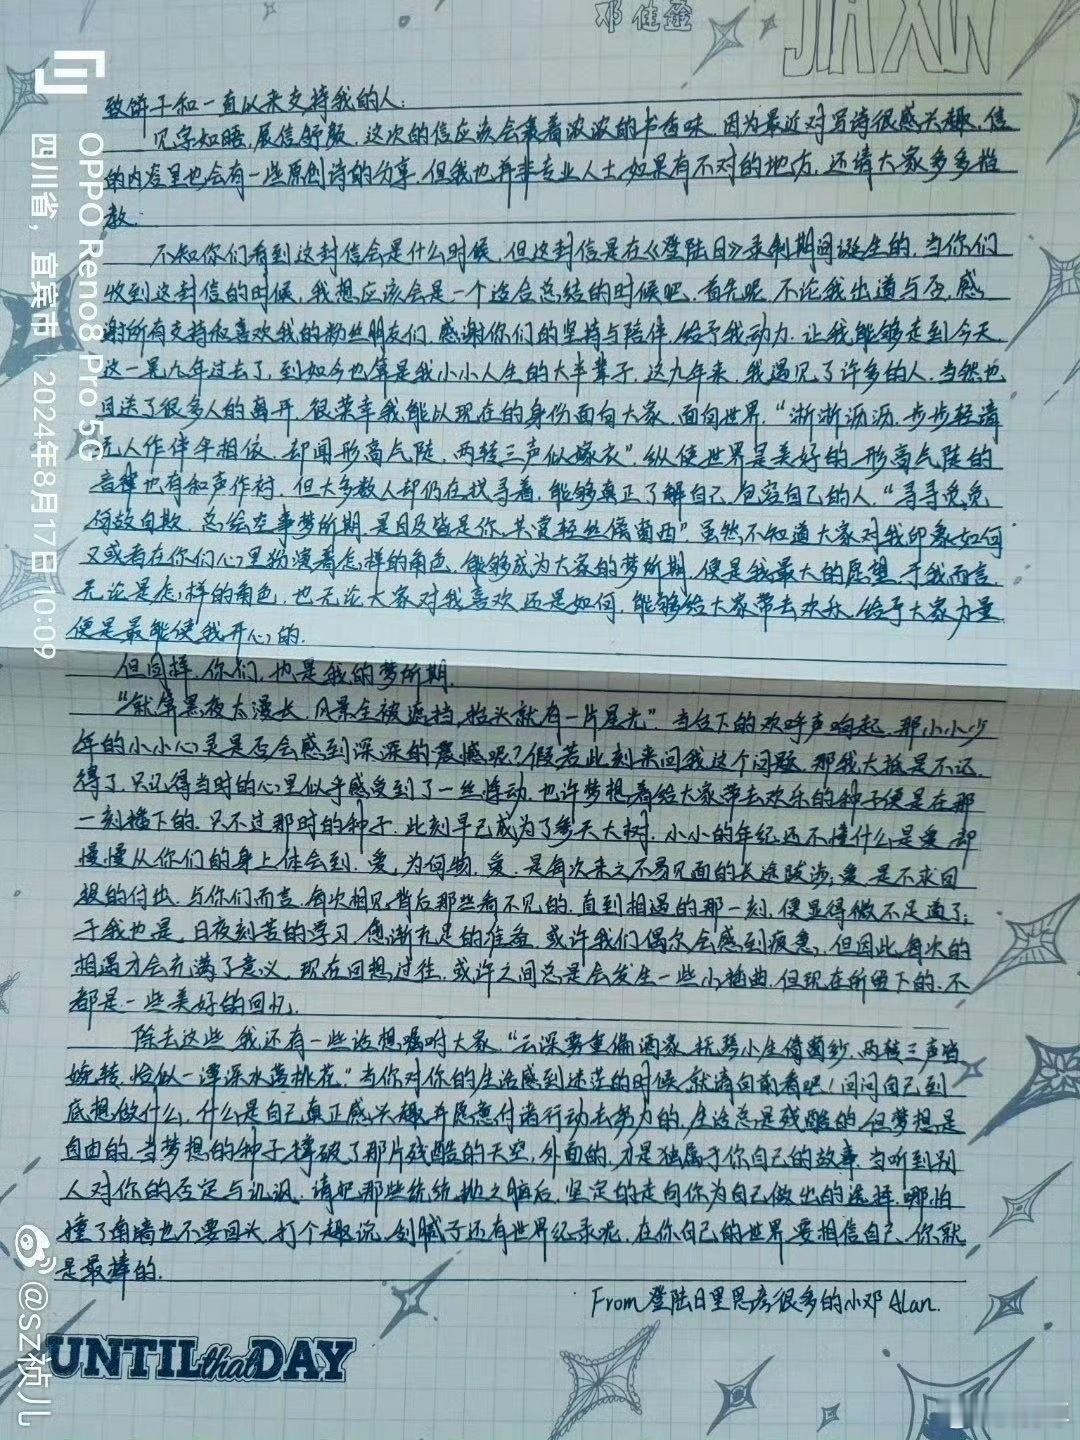 邓佳鑫
JIAXIN
致饼干和一直以来支持我的人:
见字如晤,展信舒颜,这次的信应该会靠着浓浓的书香味,因为最近对写诗很感兴趣,信
的内容里也会有一些原创诗的分享,但我也并非专业人士,如果有不对的地方,还请大家多多指
教.
不知你们看到这封信会是什么时候,但这封信是在《登陆日》录制期间诞生的,当你们
收到这封信的时候,我想应该会是一个适合总结的时候吧,首先呢,不论我出道与否,感
谢所有支持和喜欢我的粉丝朋友们,感谢你们的坚持与陪伴,给予我动力,让我能够走到今天,
这一晃九年过去了,到如今也算是我小小人生的大半辈子,这九年来,我遇见了许多的人,当然也
目送了很多人的离开,很荣幸我能以现在的身份面向大家,面向世界,“淅淅沥沥,步步轻请
无人作伴伞相依,却闻形高气陡,两转三声似嫁衣”,纵使世界是美好的,形高气陡的
音律也有和声作衬,但大多数人却仍在找寻着,能够真正了解自己,包容自己的人,“寻寻觅觅
何故自欺,总绘空事梦所期,是目及皆是你,共赏轻丝偶菊西”,虽然不知道大家对我印象如何
又或者在你们心里扮演着怎样的角色,能够成为大家的梦所期,便是我最大的愿望,于我而言,
无论是怎样的角色,也无论大家对我喜欢还是如何,能够给大家带去欢乐,给予大家力量
便是最能使我开心的.
但同样,你们,也是我的梦所期.
“就算黑夜太漫长,风景全被遮挡,抬头就有一片星光”,当台下的欢呼声响起,那小小少
年的小小心灵是否会感到深深的震憾呢?假若此刻来问我这个问题,那我大抵是不记
得了,只记得当时的心里似乎感受到了一丝悸动,也许梦想着给大家带去欢乐的种子便是在那
一刻播下的,只不过那时的种子,此刻早已成为了参天大树,小小的年纪还不懂什么是爱,却
慢慢从你们的身上体会到,爱,为何物,爱,是每次来之不易见面的长途跋涉;爱,是不求回
报的付出,与你们而言,每次相见,背后那些看不见的,直到相遇的那一刻,便显得微不足道了;
于我也是,日夜刻苦的学习,愈渐充足的准备,或许我们偶尔会感到疲惫,但因此,每次的
相遇才会充满了意义,现在回想过往,或许之间总是会发生一些小插曲,但现在所留下的,不
都是一些美好的回忆.
除去这些,我还有一些话想嘱咐大家,“云深雾重偏酒家,抚琴小生倚菊纱,两转三声皆
婉转,恰似一潭深水落桃花,”当你对你的生活感到迷茫的时候,就请向前看吧!问问自己到
底想做什么,什么是自己真正感兴趣并愿意付诸行动去努力的,生活总是残酷的,但梦想是
自由的,当梦想的种子撑破了那片残酷的天空,外面的,才是独属于你自己的故事,当听到别
人对你的否定与讥讽,请把那些统统抛之脑后,坚定的走向你为自己做出的选择,哪怕
撞了南墙也不要回头,打个趣说,刮腻子还有世界纪录呢,在你自己的世界要相信自己,你就
是最棒的.
From登陆日里思考很多的小邓Alan.
UNTIL that DAY
OPPO Reno8 Pro 5G
四川省，宜宾市 | 2024年8月17日 10:09
@SZ桢儿